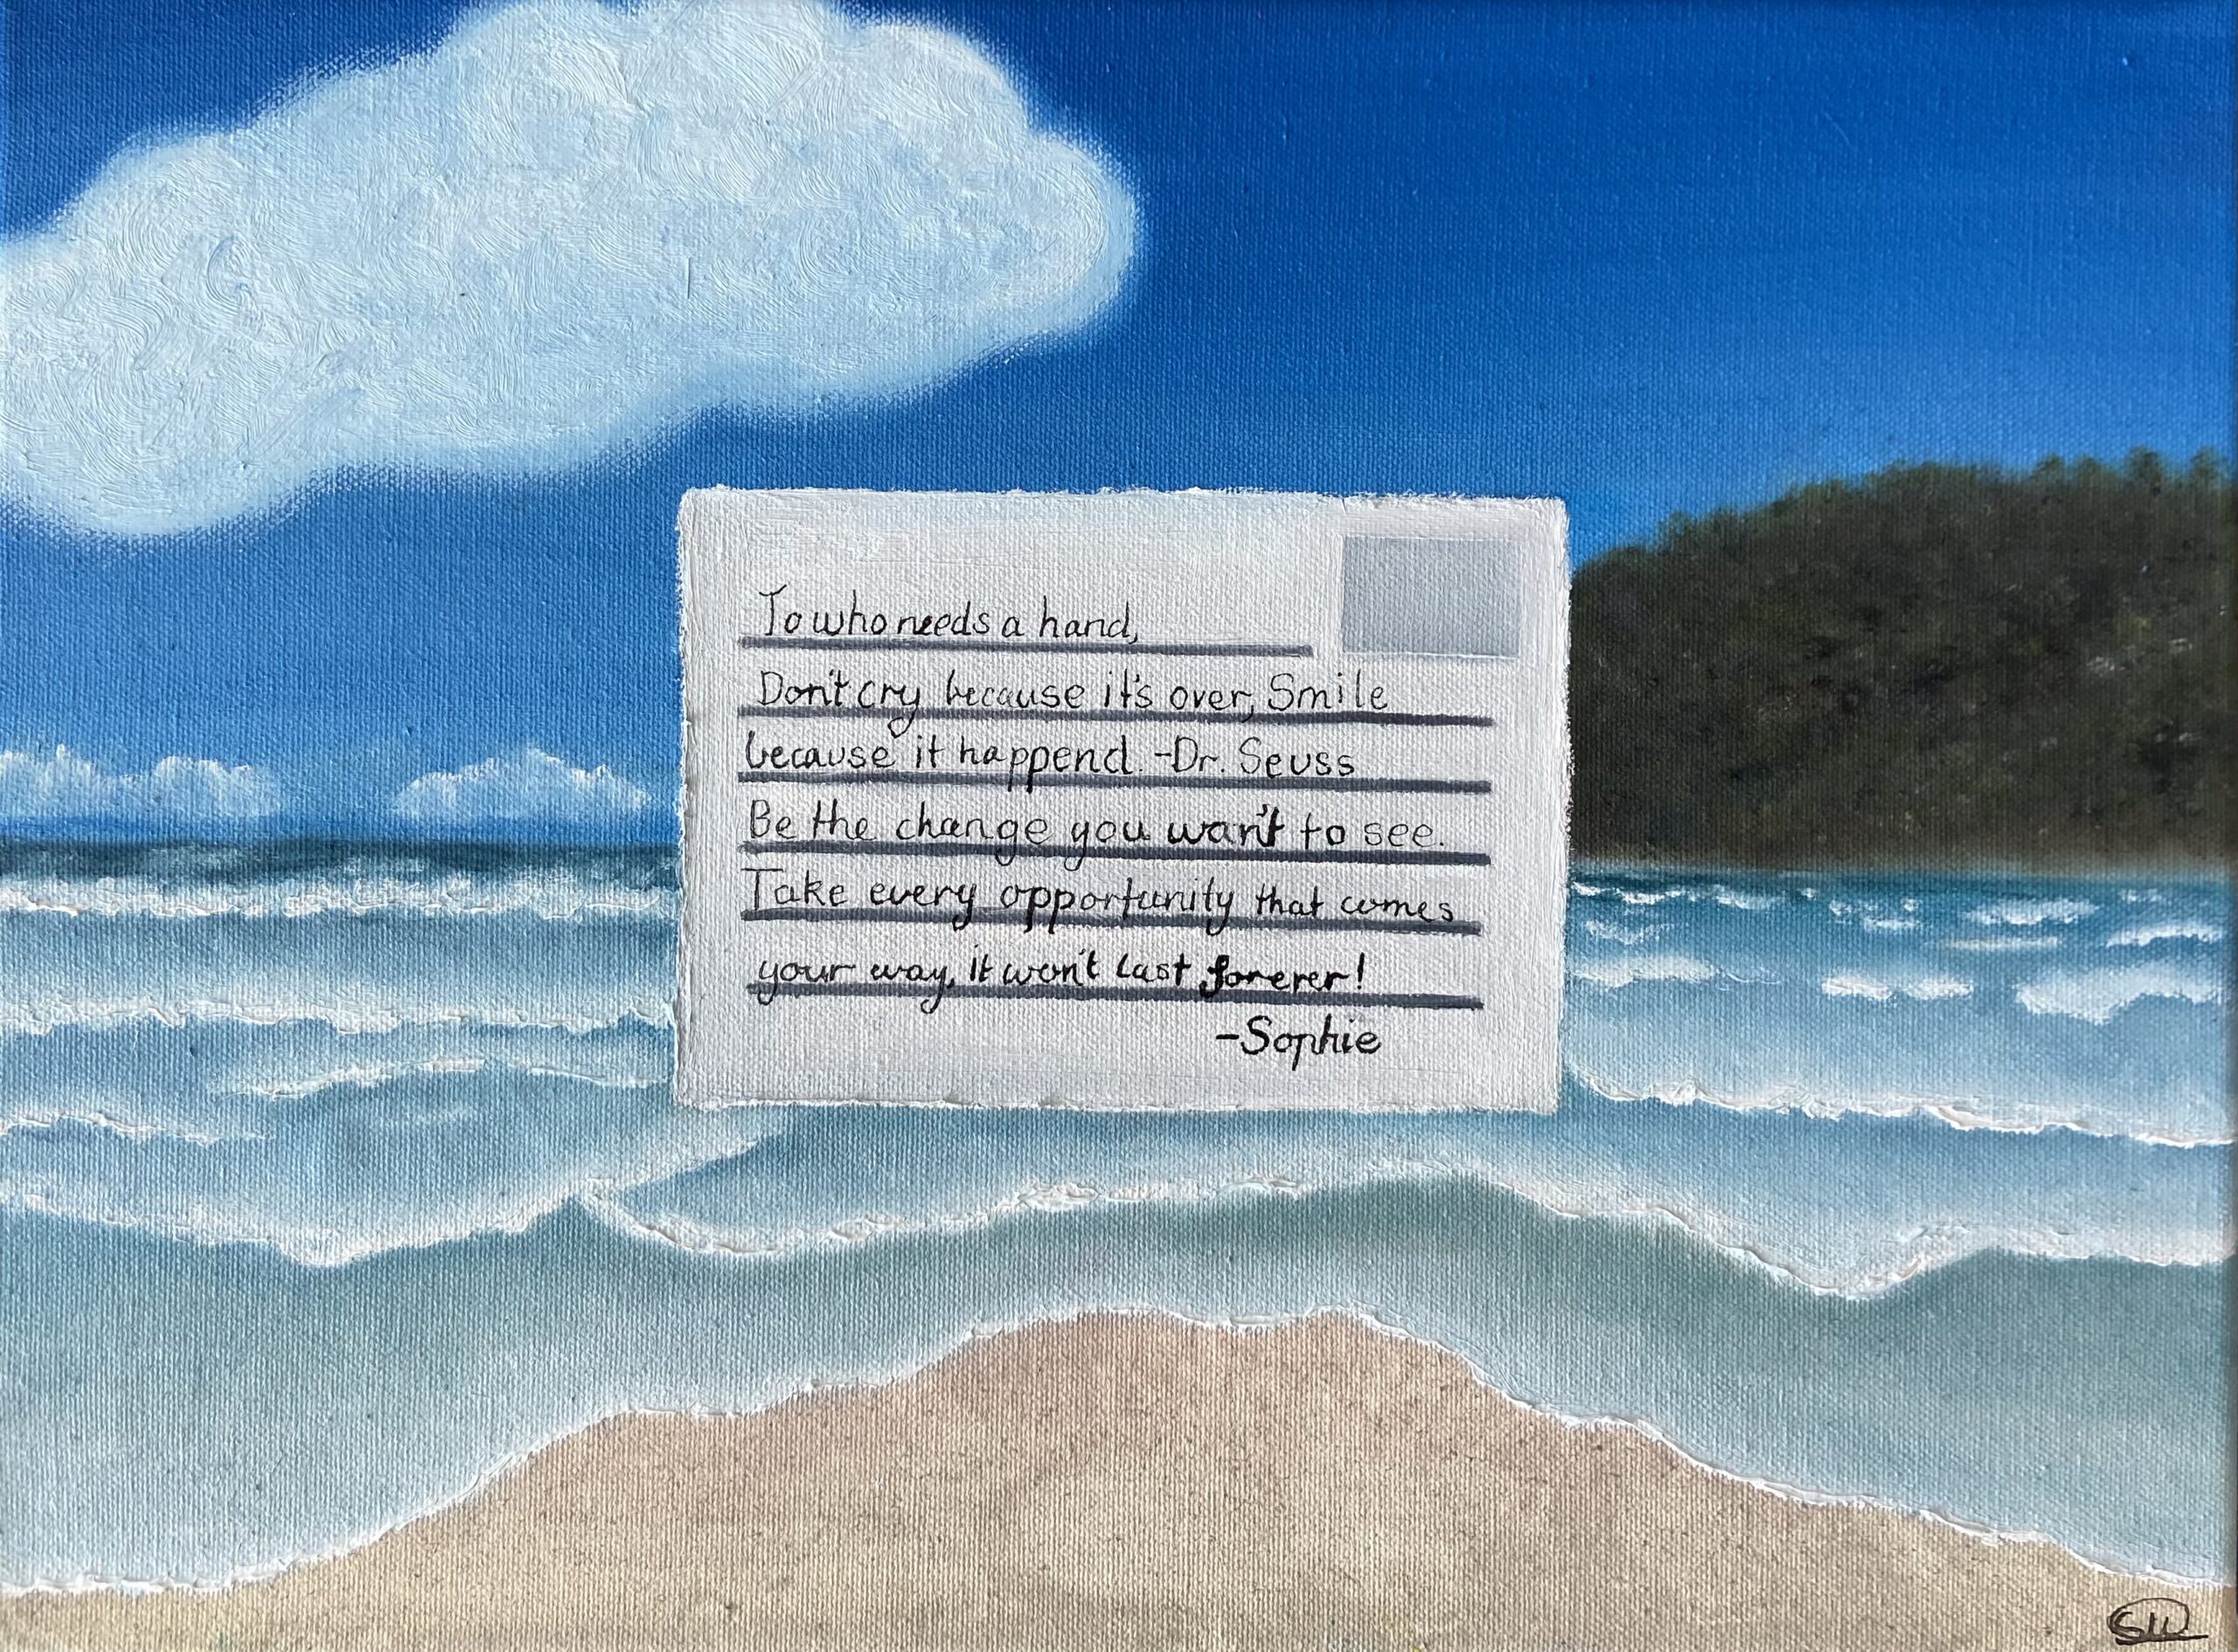 To who needs a hand,
Don't cry because it's over, Smile
because it happend. -Dr. Seuss
Be the change you wan't to see.
Take every opportunity that comes
your way, it won't last forever!
-Sophie
SW